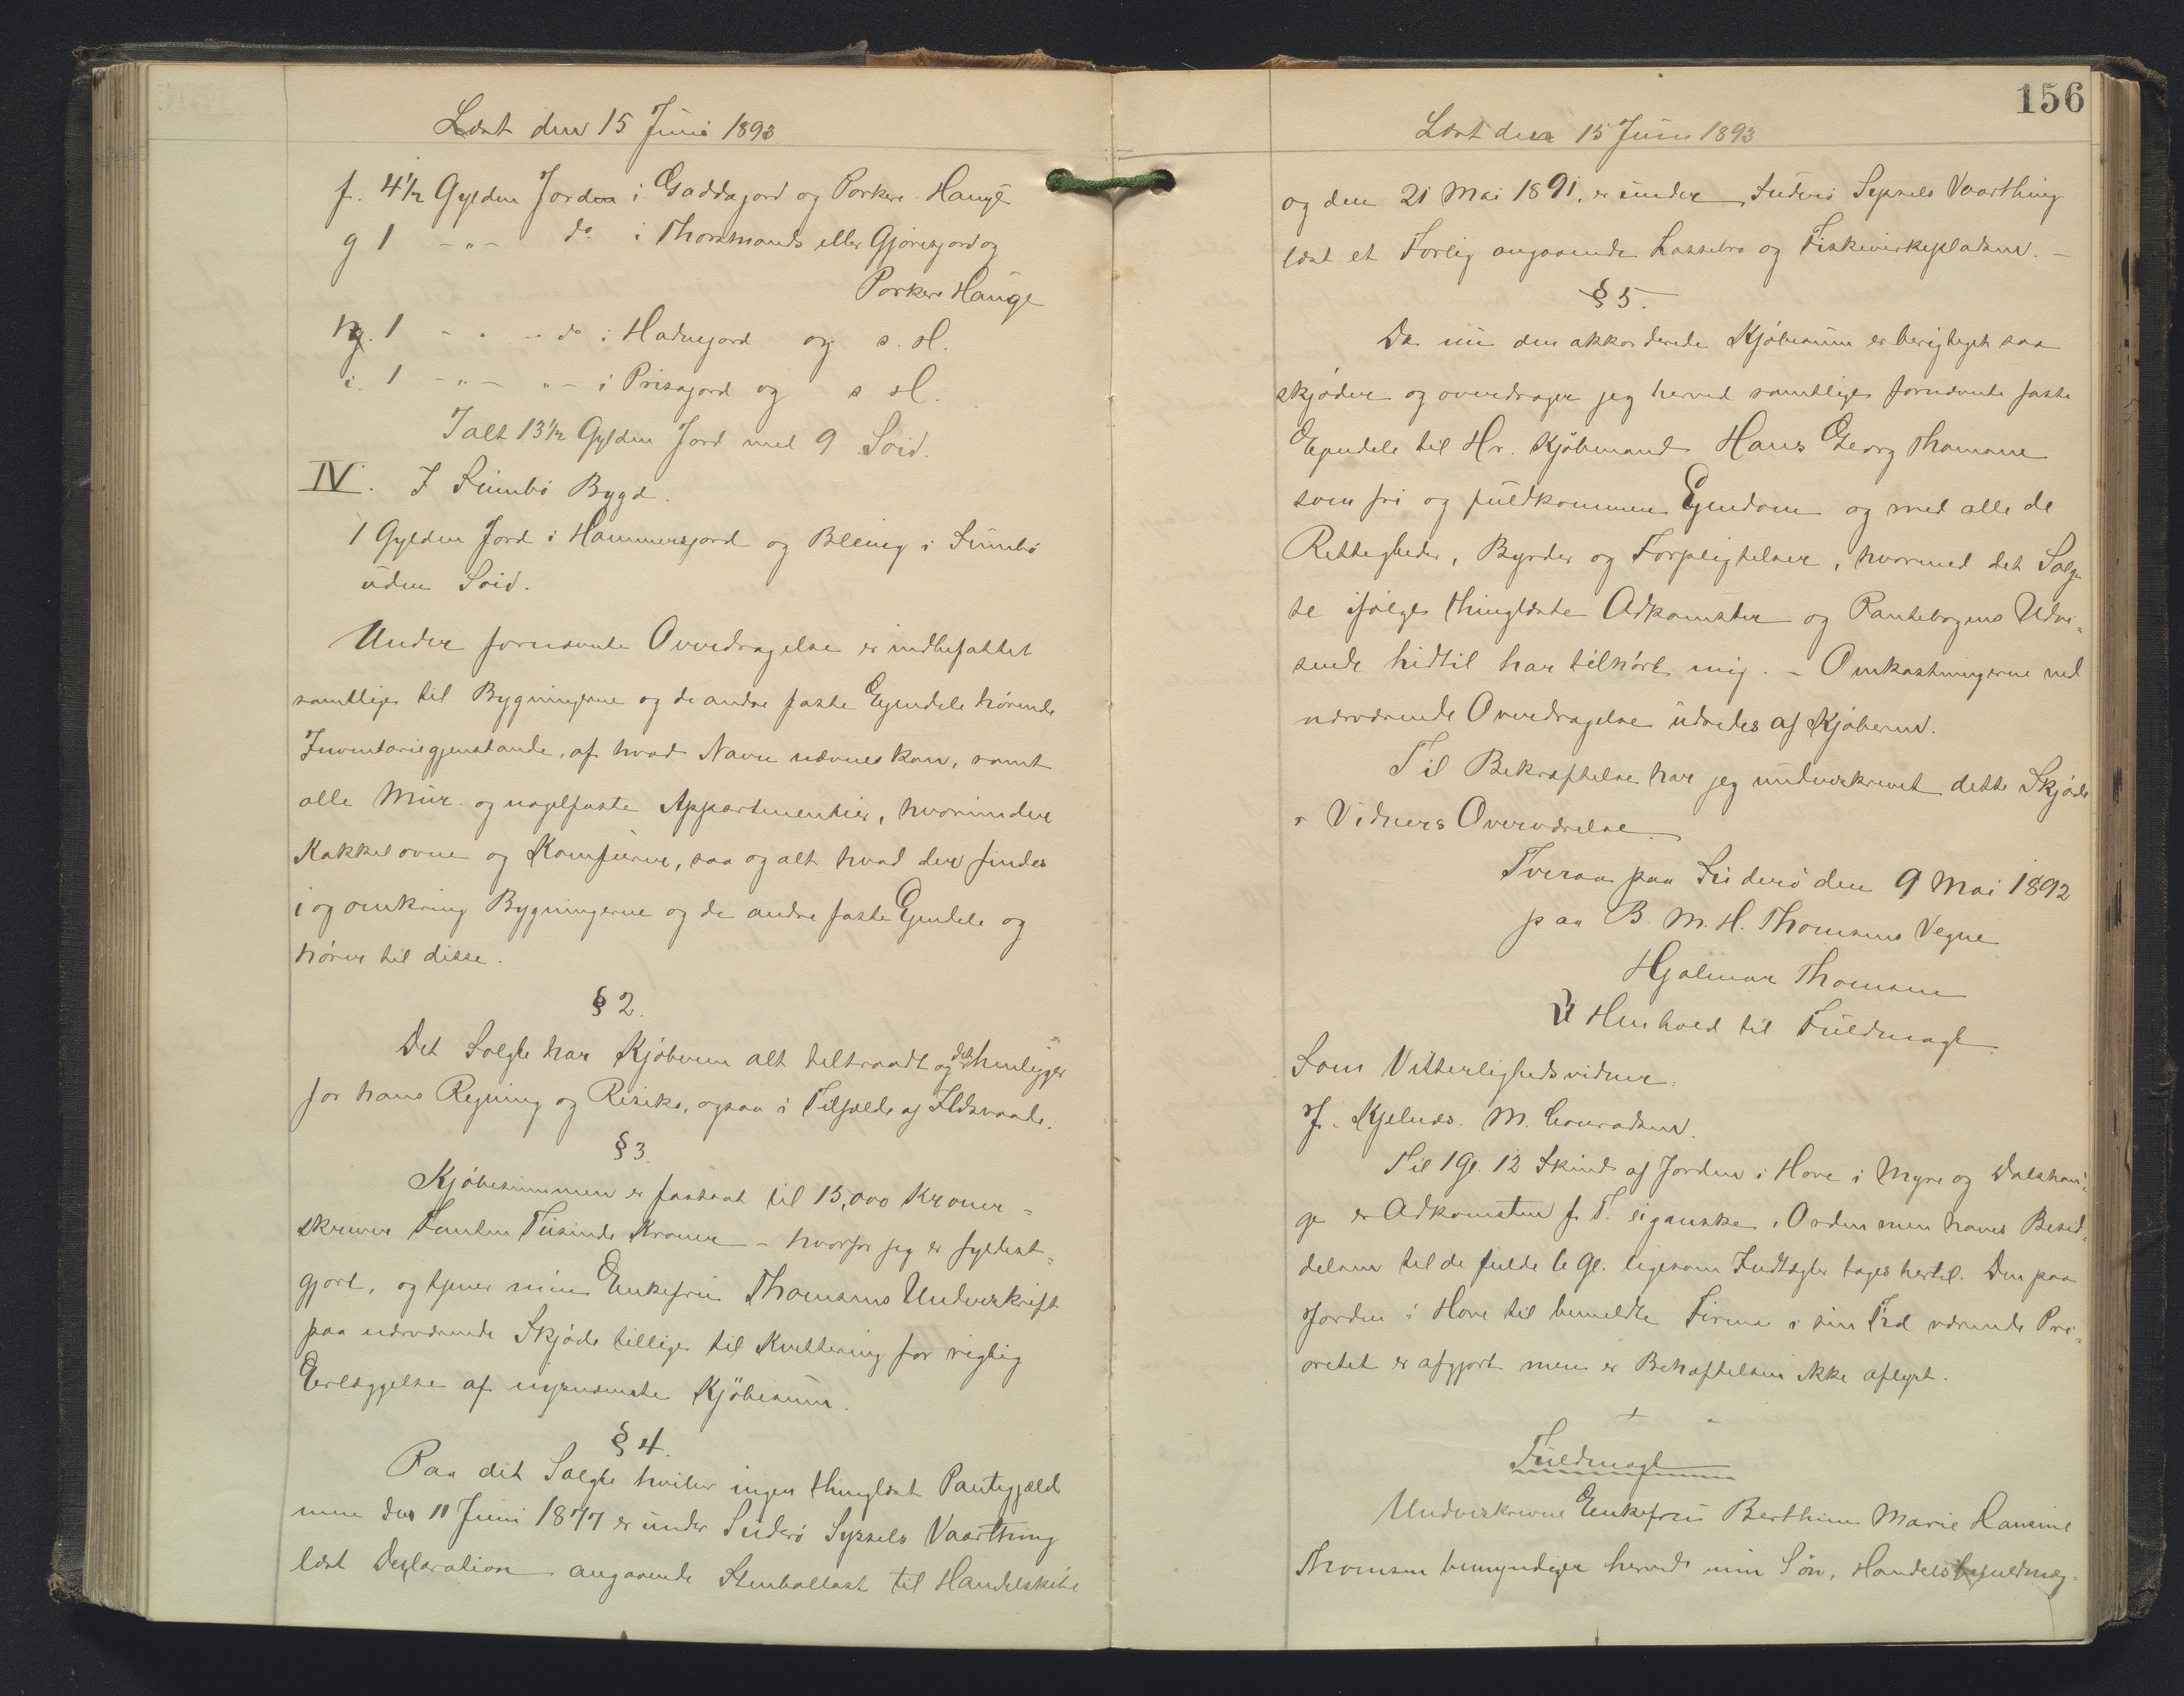 Læst den 15 Juni 1893
f. 4½ Gylden Jorden i Gaddajord og Porkere Hauge
g 1 -"- do i Thormands eller Gjøresjord og
Porkere Hauge
h. 1 - " - do i Hadnejord og s. H.
i. 1 -"- "- i Prisajord og s H.
Ialt 13½ Gylden Jord med 9 Soid.
IV. I Sumbö Bygd.
1 Gylden Jord i Hammersjord og Blling i Sumbö
uden Soid.
Under fornævnte Overdragelse er indbefattet
samtlige til Bygningerne og de andre faste Ejendele hørende
Inventariegjenstande, af hvad Navn nævnes kan, samt
alle Mur- og nagelfaste Appartinentier, hvorunder
Kakkelovne og Komfurer, saa og alt hvad der findes
i og omkring Bygningerne og de andre faste Ejendele og
hører til disse.
§ 2.
Det Solgte har Kjøberen alt tiltraadt og det henligger
for hans Regning og Risiko, ogsaa i Tilfælde af Ildsvaade.
§ 3.
Kjøbesummen er fastsat til 15,000 Kroner -
skriver Femten Tusinde Kroner - hvorfor jeg er fyldest-
gjort, og tjener min Enkefru Thomsens Underskrift
paa nærværende Skjøde tillige til Kvittering for rigtig
Erlæggelse af nysnævnte Kjøbesum.
§ 4.
Paa det Solgte hviler ingen thinglæst Pantegjæld
men den 11 Juni 1877 er under Suderö Syssels Vaarthing
læst Deklaration angaaende Stenballast til Handelskibe
156
Læst den 15 Juni 1893
og den 21 Mai 1891. er under Suderö Syssels Vaarthing
læst et Forlig angaaende Lassebro og Fiskevirkepladsen. -
§ 5.
Da nu den akkorderede Kjøbesum er berigtiget saa
skjøder og overdrager jeg herved samtlige fornævnte faste
Ejendele til Hr. Kjøbmand Hans Georg Thomsen
som fri og fuldkommen Ejendom og med alle de
Rettigheder, Byrder og Forpligtelser, hvormed det Solg-
te ifølge thinglæste Adkomster og Pantebogens Udvi-
sende hidtil har tilhørt mig. - Omkostningerne ved
nærværende Overdragelse udredes af Kjøberen.
Til Bekræftelse har jeg underskrevet dette Skjøde
i Vidners Overværelse.
Tveraa paa Suderö den 9 Mai 1892
paa B. M. H. Thomsens Vegne
Hjalmar Thomsen
i Henhold til Fuldmagt.
Som Vitterlighedsvidner:
J. Kjelnæs. M. Conradsen.
Til 1 Gl. 12 Skind af Jorden i Hove i Myre og Dalshau-
ge er Adkomsten f. T. ei ganske i Orden men haves Besid-
delsen til de fulde 6 Gl. ligesom Indtægter tages hertil. Den paa
Jorden i Hove til bemeldte Firma i sin Tid værende Pri-
oritet er afgjort men er Behæftelsen ikke aflyst.
Fuldmagt
Underskrevne Enkefru Berthine Marie Hansine
Thomsen bemyndiger herved min Søn, Handelsbefuldmæg-